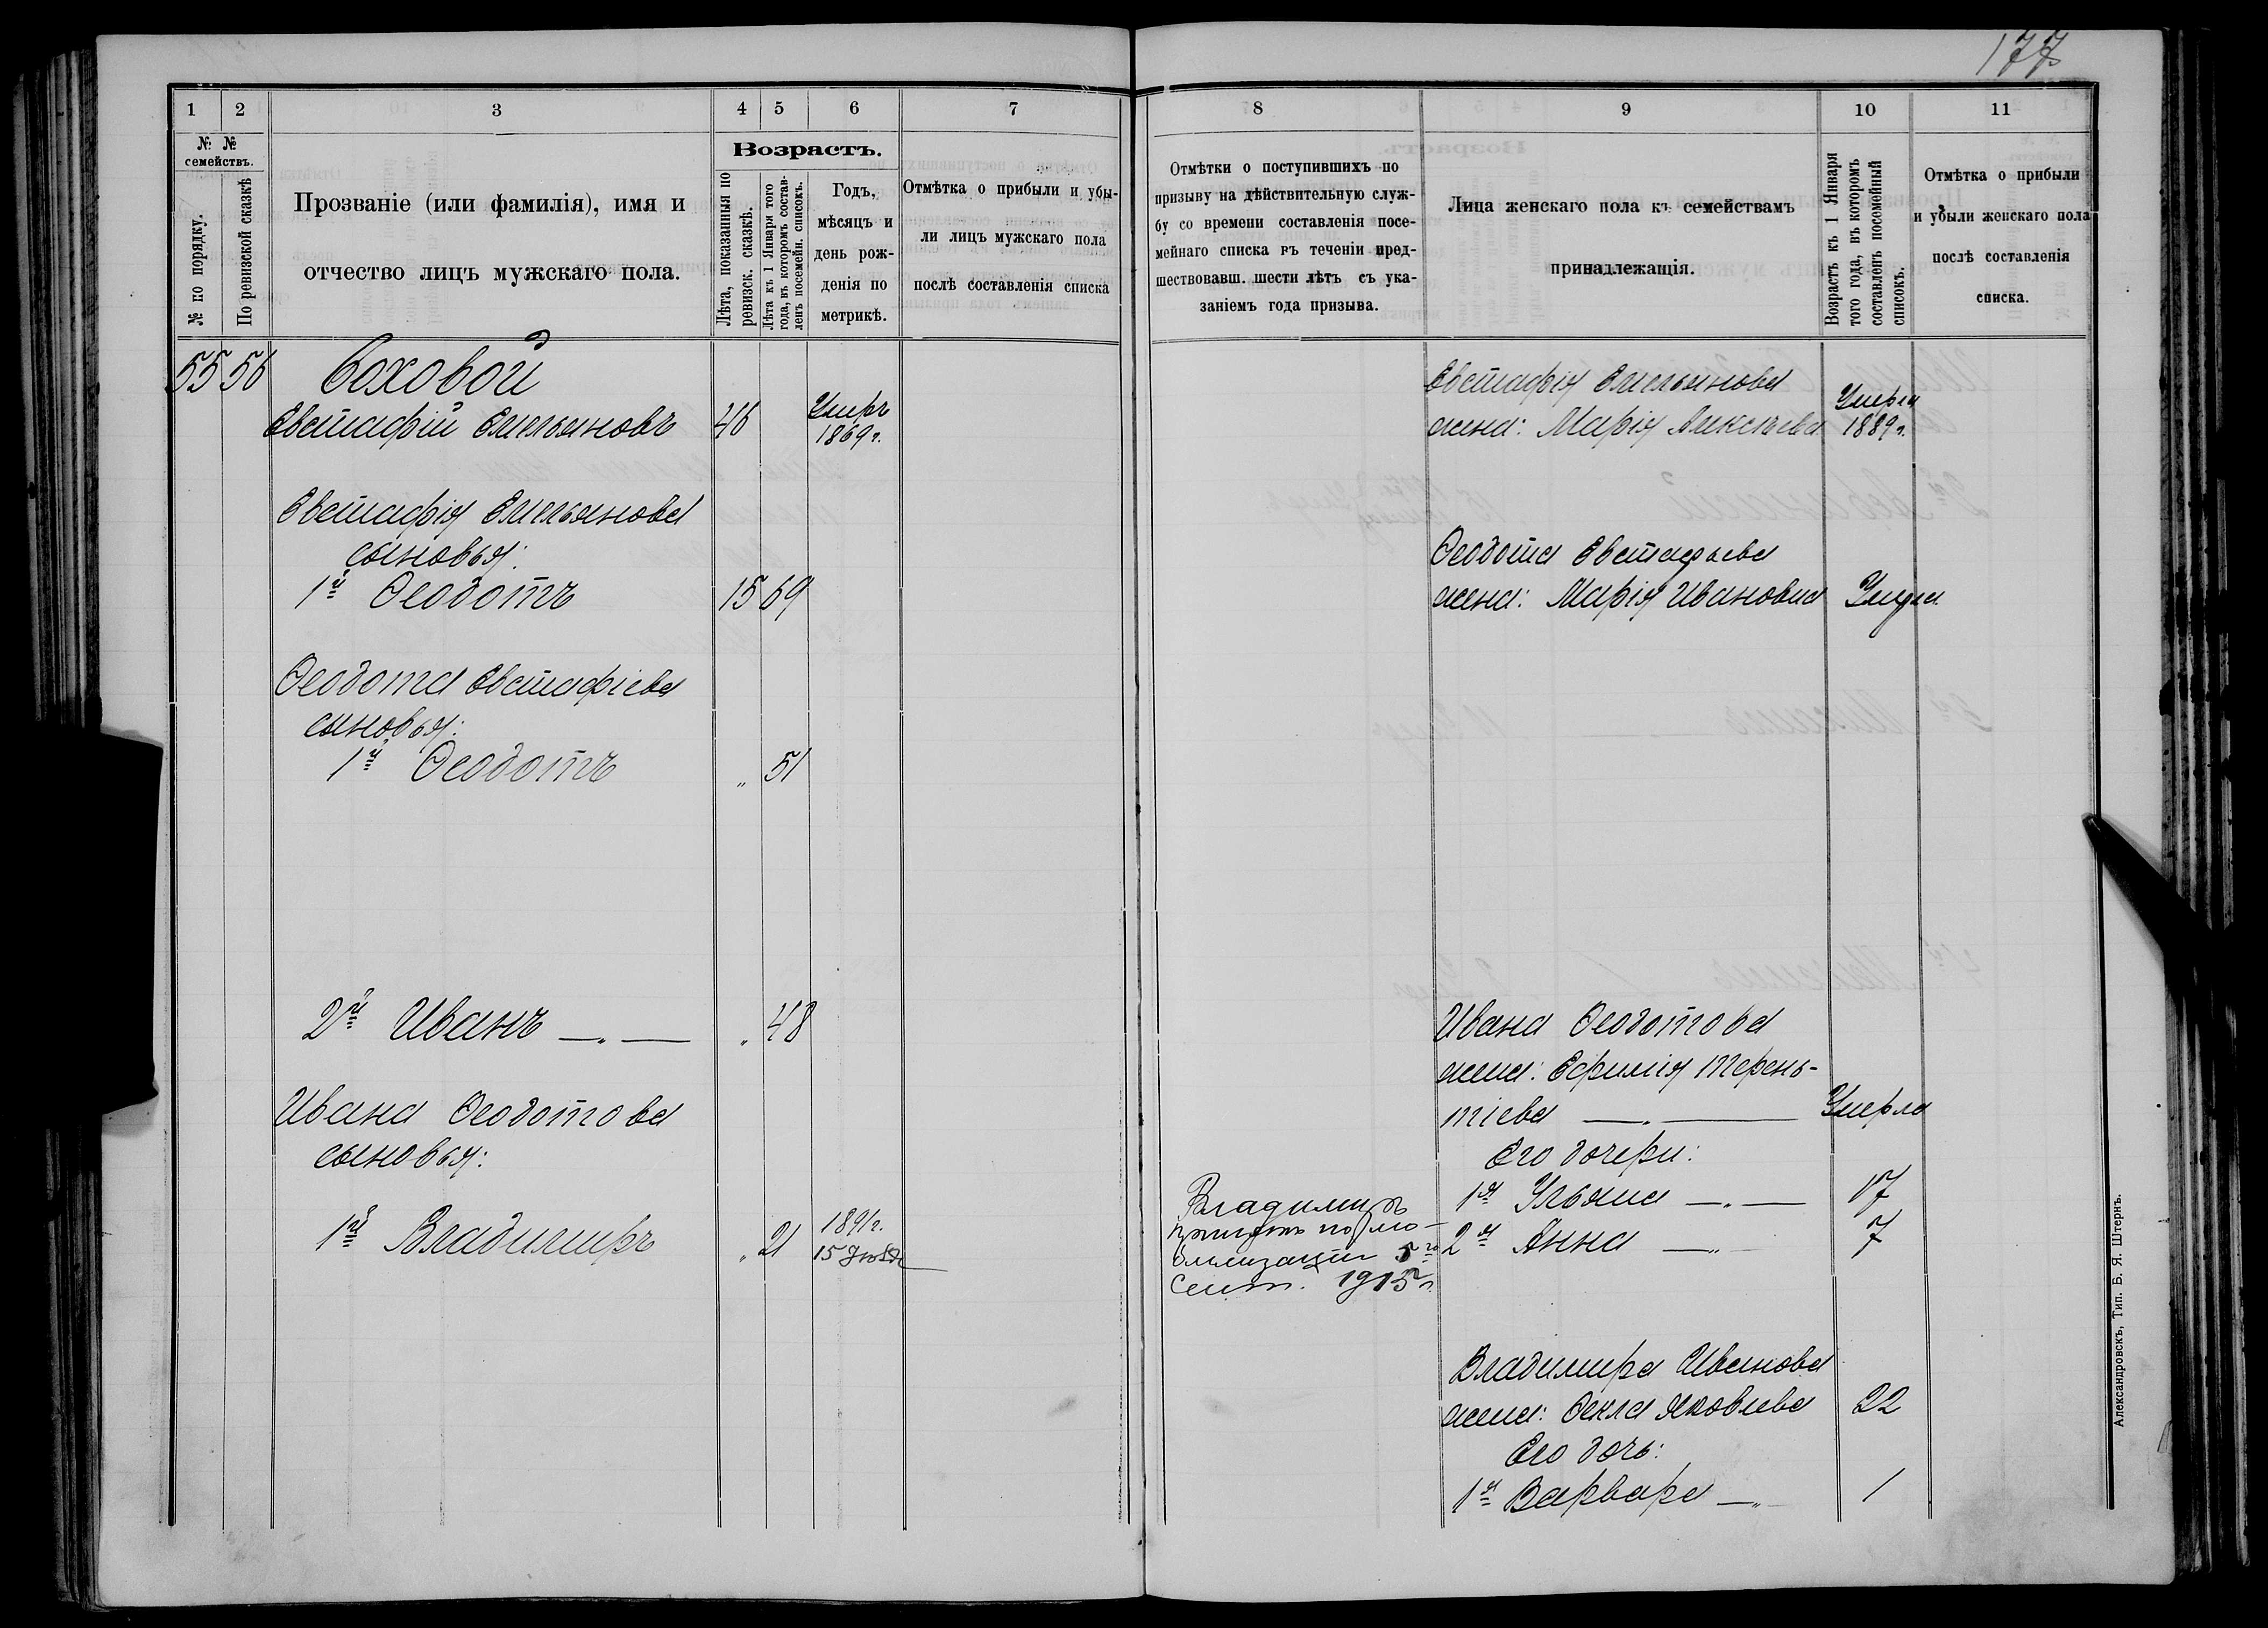 177
1 2 3 4 5 6 7
№ №
семействъ.
№ по порядку.
По ревизской сказкѣ
Прозваніе (или фамилія), имя и
отчество лицъ мужскаго пола.
Возрастъ.
Лѣта, показанныя по
ревизск. сказкѣ.
Лѣта къ 1 Января того
года, въ которомъ состав-
ленъ посемейн. списокъ.
Годъ,
мѣсяцъ и
день рож-
денія по
метрикѣ.
Отмѣтка о прибыли и убы-
ли лицъ мужскаго пола
послѣ составленія списка
55 56 Соховой
Евстафій Емельяновъ 46 Умеръ
1869 г.
Евстафія Емельянова
сыновья:
1й Ѳеодотъ 15 69
Ѳеодота Евстафіева
сыновья:
1й Ѳеодотъ „ 51
2й Иванъ —„— „ 48
Ивана Ѳеодотова
сыновья:
1й Владимиръ „ 21 1891 г.
15 Іюля
8 9 10 11
Отмѣтки о поступившихъ по
призыву на дѣйствительную служ-
бу со времени составленія посе-
мейнаго списка въ теченіи пред-
шествовавш. шести лѣтъ съ ука-
заніемъ года призыва.
Лица женскаго пола къ семействамъ
принадлежащія.
Возрастъ къ 1 Января
того года, въ которомъ
составленъ посемейный
списокъ.
Отмѣтка о прибыли
и убыли женскаго пола
послѣ составленія
списка.
Евстафія Емельянова
жена: Марія Алексѣева Умерла
1889 г.
Ѳеодота Евстафьева
жена: Марія Ивановна Умерла
Ивана Ѳеодотова
жена: Ефимія Терень-
тіева —„— Умерла
Его дочери:
1я Ульяна —„— 17
2я Анна —„— 7
Владимиръ
принятъ по мо-
билизаціи 5го
Сент. 1915 г.
Владимира Иванова
жена: Ѳекла Яковлева 22
Его дочь:
1я Варвара —„— 1
Александровскъ, Тип. Б. Я. Штернъ.